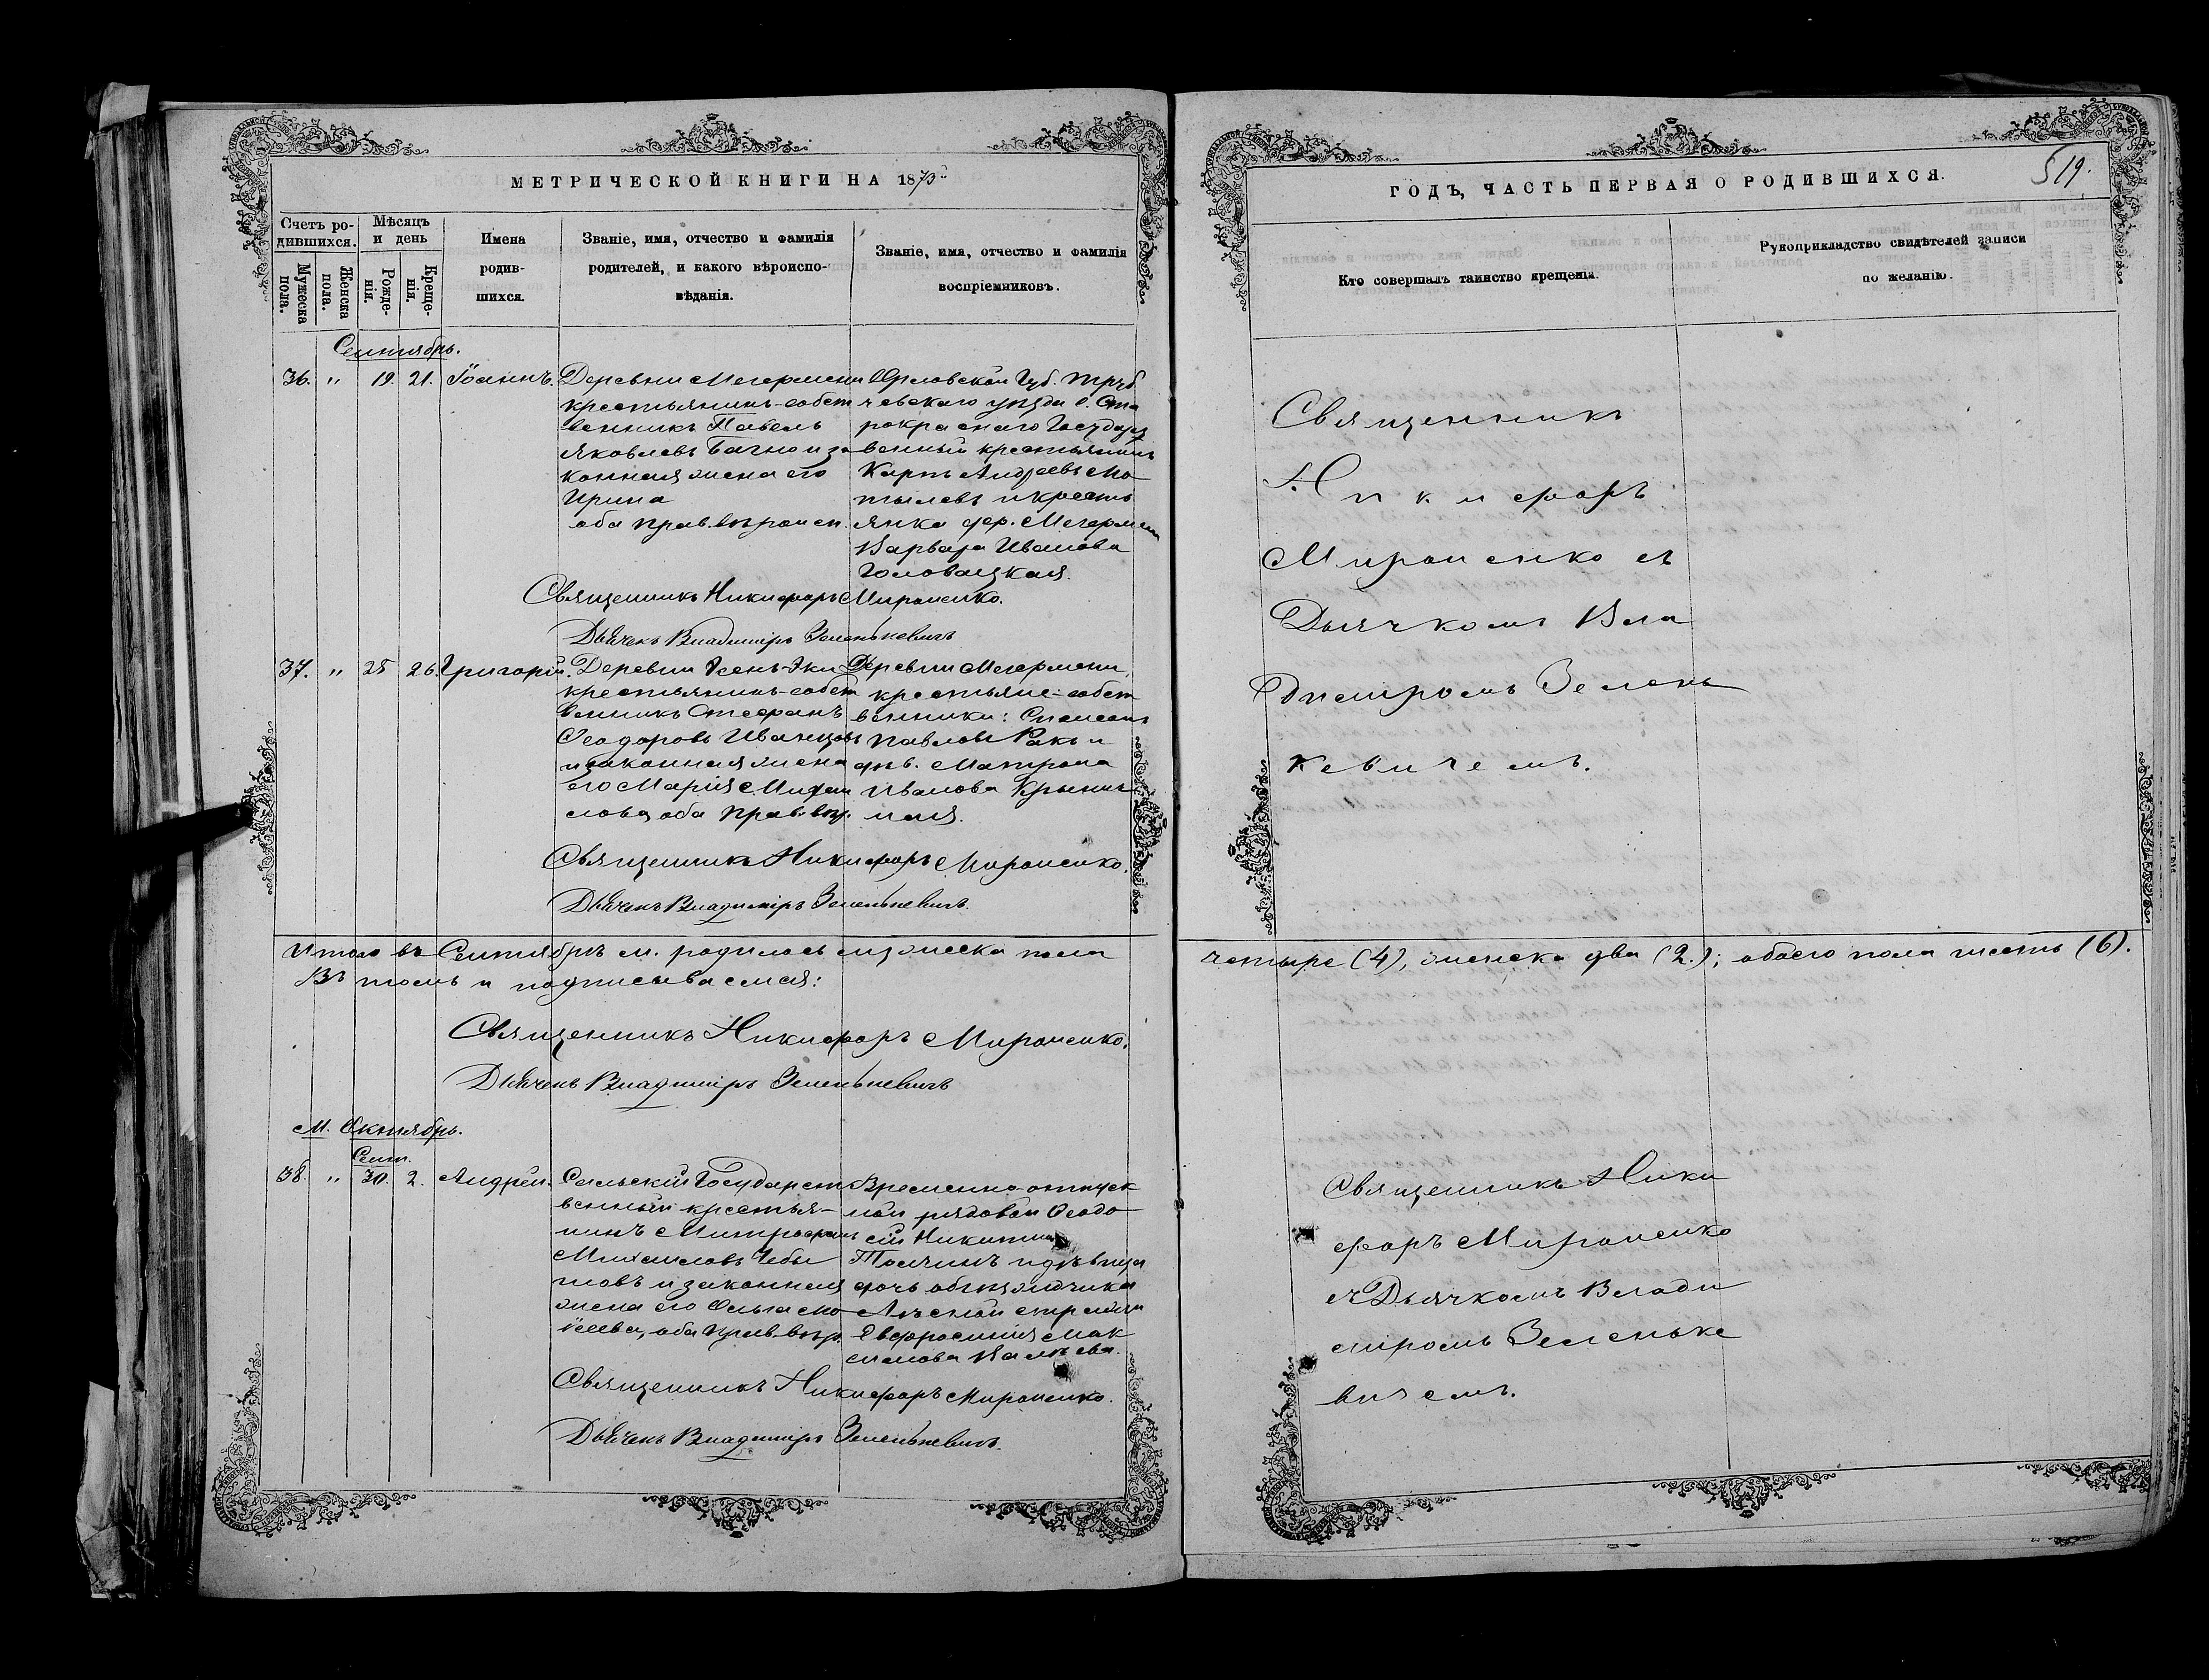 МЕТРИЧЕСКОЙ КНИГИ НА 1873й
Счетъ ро-
дившихся.
Мужеска
пола.
Женска
пола.
Мѣсяцъ
и день
Рожде-
нія.
Креще-
нія.
Имена
родив-
шихся.
Званіе, имя, отчество и фамилія
родителей, и какого вѣроиспо-
вѣданія.
Званіе, имя, отчество и фамилія
воспріемниковъ.
Сентябрь.
36. " 19. 21. Іоаннъ.
Деревни Мегермени
крестьянинъ-собст
венникъ Павелъ
Яковлевъ Багно и за
конная жена его
Ирина
оба прав. вѣроисп.
Орловской Губ. Труб
чевскаго уѣзда с. Ста
Государст
венный крестьянинъ
Карпъ Андреевъ Мо
тылевъ и кресть
янка дер. Мегермени
Варвара Иванова
Головацкая.
Священникъ Никифоръ Мироненко.
Дьячекъ Владиміръ Зеленькевичъ
37. " 25 26. Григорій.
Деревни
крестьянинъ-собст
венникъ Стефанъ
Ѳеодоровъ Иванцовъ
и законная жена
его Марія Михаи
лова, оба прав. вѣр.
Деревни Мегермени,
крестьяне-собст
венники: Симеонъ
Павловъ Ракъ и
дѣв. Матрона
Иванова
Священникъ Никифоръ Мироненко.
Дьячекъ Владиміръ Зеленькевичъ.
Итого въ Сентябрѣ м. родилось мужеска пола
Въ томъ и подписываемся:
Священникъ Никифоръ Мироненко.
Дьячекъ Владиміръ Зеленькевичъ
М. Октябрь.
Сент.
38. " 30. 2. Андрей.
Сельскій Государст
венный крестья-
нинъ Митрофанъ
Михаиловъ Чебы
товъ и законная
жена его Ольга Мо
исеева, оба прав. вѣр.
Временно-отпуск
ной рядовой Ѳеодо
сій Никитинъ
и дѣвица
дочь объѣзжчика
Лѣсной стражи
Евфросинія Мак
симова
Священникъ Никифоръ Мироненко.
Дьячекъ Владиміръ Зеленькевичъ.
ГОДЪ, ЧАСТЬ ПЕРВАЯ О РОДИВШИХСЯ.
519.
Кто совершалъ таинство крещенія.
Рукоприкладство свидѣтелей записи
по желанію.
Священникъ
Никифоръ
Мироненко съ
Дьячкомъ Вла
диміромъ Зелень
кевичемъ.
четыре (4), женска два (2.); обоего пола шесть (6).
Священникъ Ники
форъ Мироненко
съ Дьячкомъ Влади
міромъ Зеленьке
вичемъ.